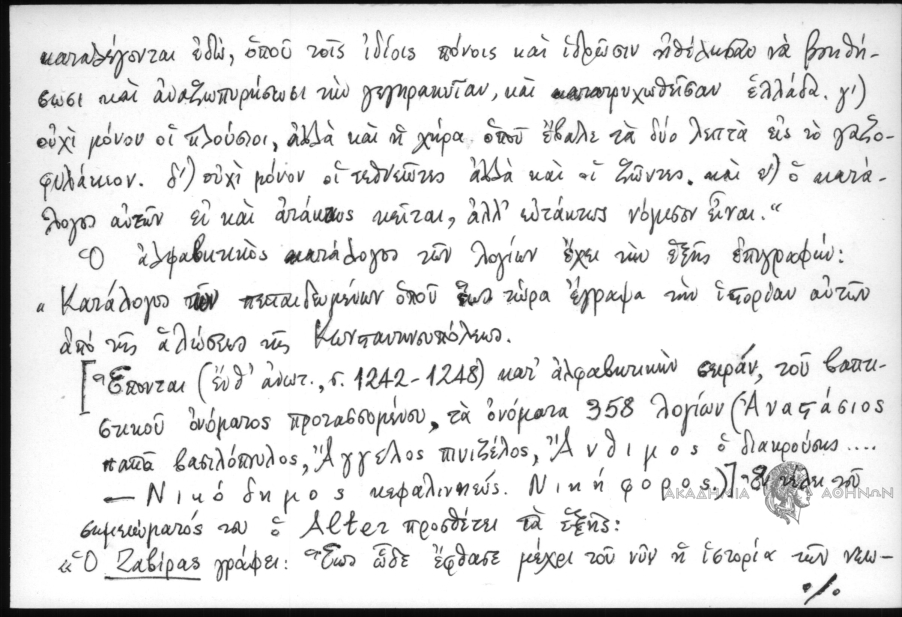 καταλέγονται ἐδώ, ὁποῦ τοῖς ἰδίοις πόνοις καὶ ἱδρῶσιν ἠθέλησαν νὰ βοηθή-
σωσι καὶ ἀναζωπυρήσωσι τὴν γεγηρακυῖαν, καὶ κατατρυχωθεῖσαν ἑλλάδα. γ')
οὐχὶ μόνον οἱ πλούσιοι, ἀλλὰ καὶ ἡ χήρα ὁποῦ ἔβαλε τὰ δύο λεπτὰ εἰς τὸ γαζο-
φυλάκιον. δ') οὐχὶ μόνον οἱ τεθνεῶτες ἀλλὰ καὶ οἱ ζῶντες. καὶ ε') ὁ κατά-
λογος αὐτῶν εἰ καὶ ἀτάκτως κεῖται, ἀλλ' εὐτάκτως νόμισον εἶναι."
Ὁ ἀλφαβητικὸς κατάλογος τῶν λογίων ἔχει τὴν ἑξῆς ἐπιγραφήν:
"Κατάλογος τῶν πεπαιδευμένων ὁποῦ ἕως τώρα ἔγραψα τὴν ἱστορίαν αὐτῶν
ἀπὸ τῆς ἁλώσεως τῆς Κωνσταντινουπόλεως.
[Ἕπονται (ἔνθ' ἀνωτ., σ. 1242-1248) κατ' ἀλφαβητικὴν σειράν, τοῦ βαπτι-
στικοῦ ὀνόματος προτασσομένου, τὰ ὀνόματα 358 λογίων (Ἀναστάσιος
παπᾶ βασιλόπυλος, Ἄγγελος πινιζέλος, Ἄνθιμος ὁ διακρούσης ....
— Νικόδημος κεφαλινηεύς. Νικήφορος.)] Ἐν τέλει τοῦ
σημειώματός του ὁ Alter προσθέτει τὰ ἑξῆς:
"Ὁ Ζαβίρας γράφει: Ἕως ὧδε ἔφθασε μέχρι τοῦ νῦν ἡ ἱστορία τῶν νεω-
./.
ΑΚΑΔΗΜΙΑ ΑΘΗΝΩΝ